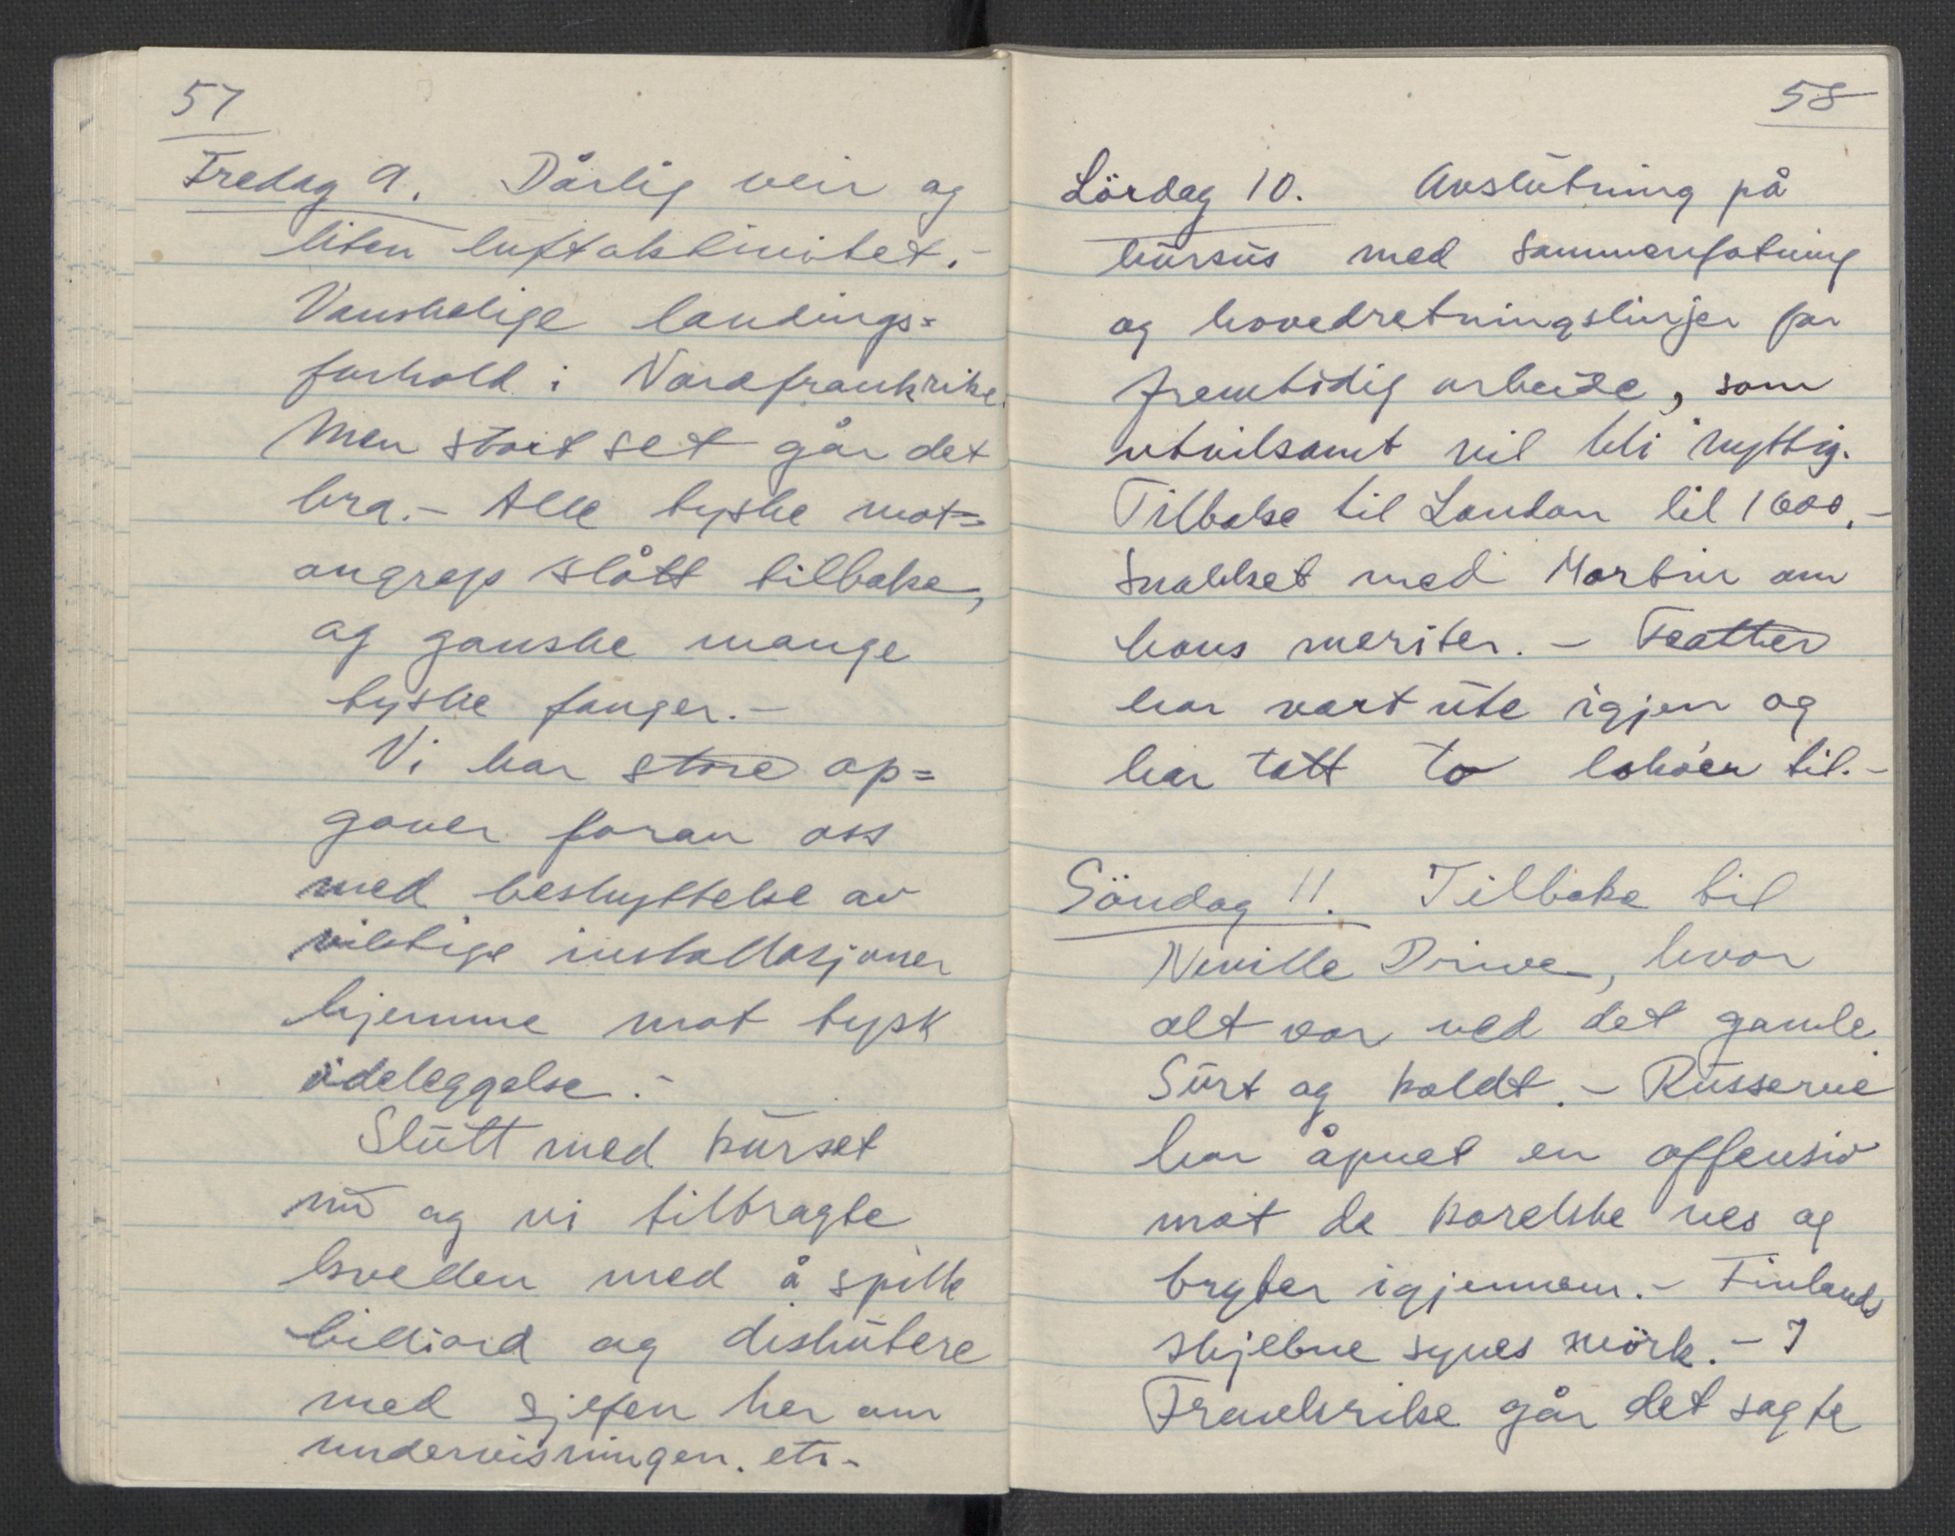 57
Fredag 9. Dårlig veir og
liten luftaktivitet.-
Vanskelige landings=
forhold i Nordfrankrike.
Men stort set går det
bra.- Alle tyske mot=
angrep slått tilbake,
og ganske mange
tyske fanger.-
Vi har store op=
gaver foran oss
med beskyttelse av
viktige installasjoner
hjemme mot tysk
ödeleggelse.-
Slutt med kurset
nu og vi tilbragte
kvelden med å spille
billiard og diskutere
med sjefen her om
undervisningen. etc.-
58
Lördag 10. Avslutning på
kursus med sammenfatning
og hovedretningslinjer for
fremtidig arbeide, som
utvilsomt vil bli nyttig.
Tilbake til London kl 1600.-
Snakket med Martin om
hans meriter. - Feather
har vært ute igjen og
har tatt to lokóer til.-
Söndag 11. Tilbake til
Neville Drive, hvor
alt var ved det gamle
Surt og koldt. - Russerne
har åpnet en offensiv
mot de karelske nes og
bryter igjennem.- Finlands
skjebne synes mörk. - I
Frankrike går det sagte